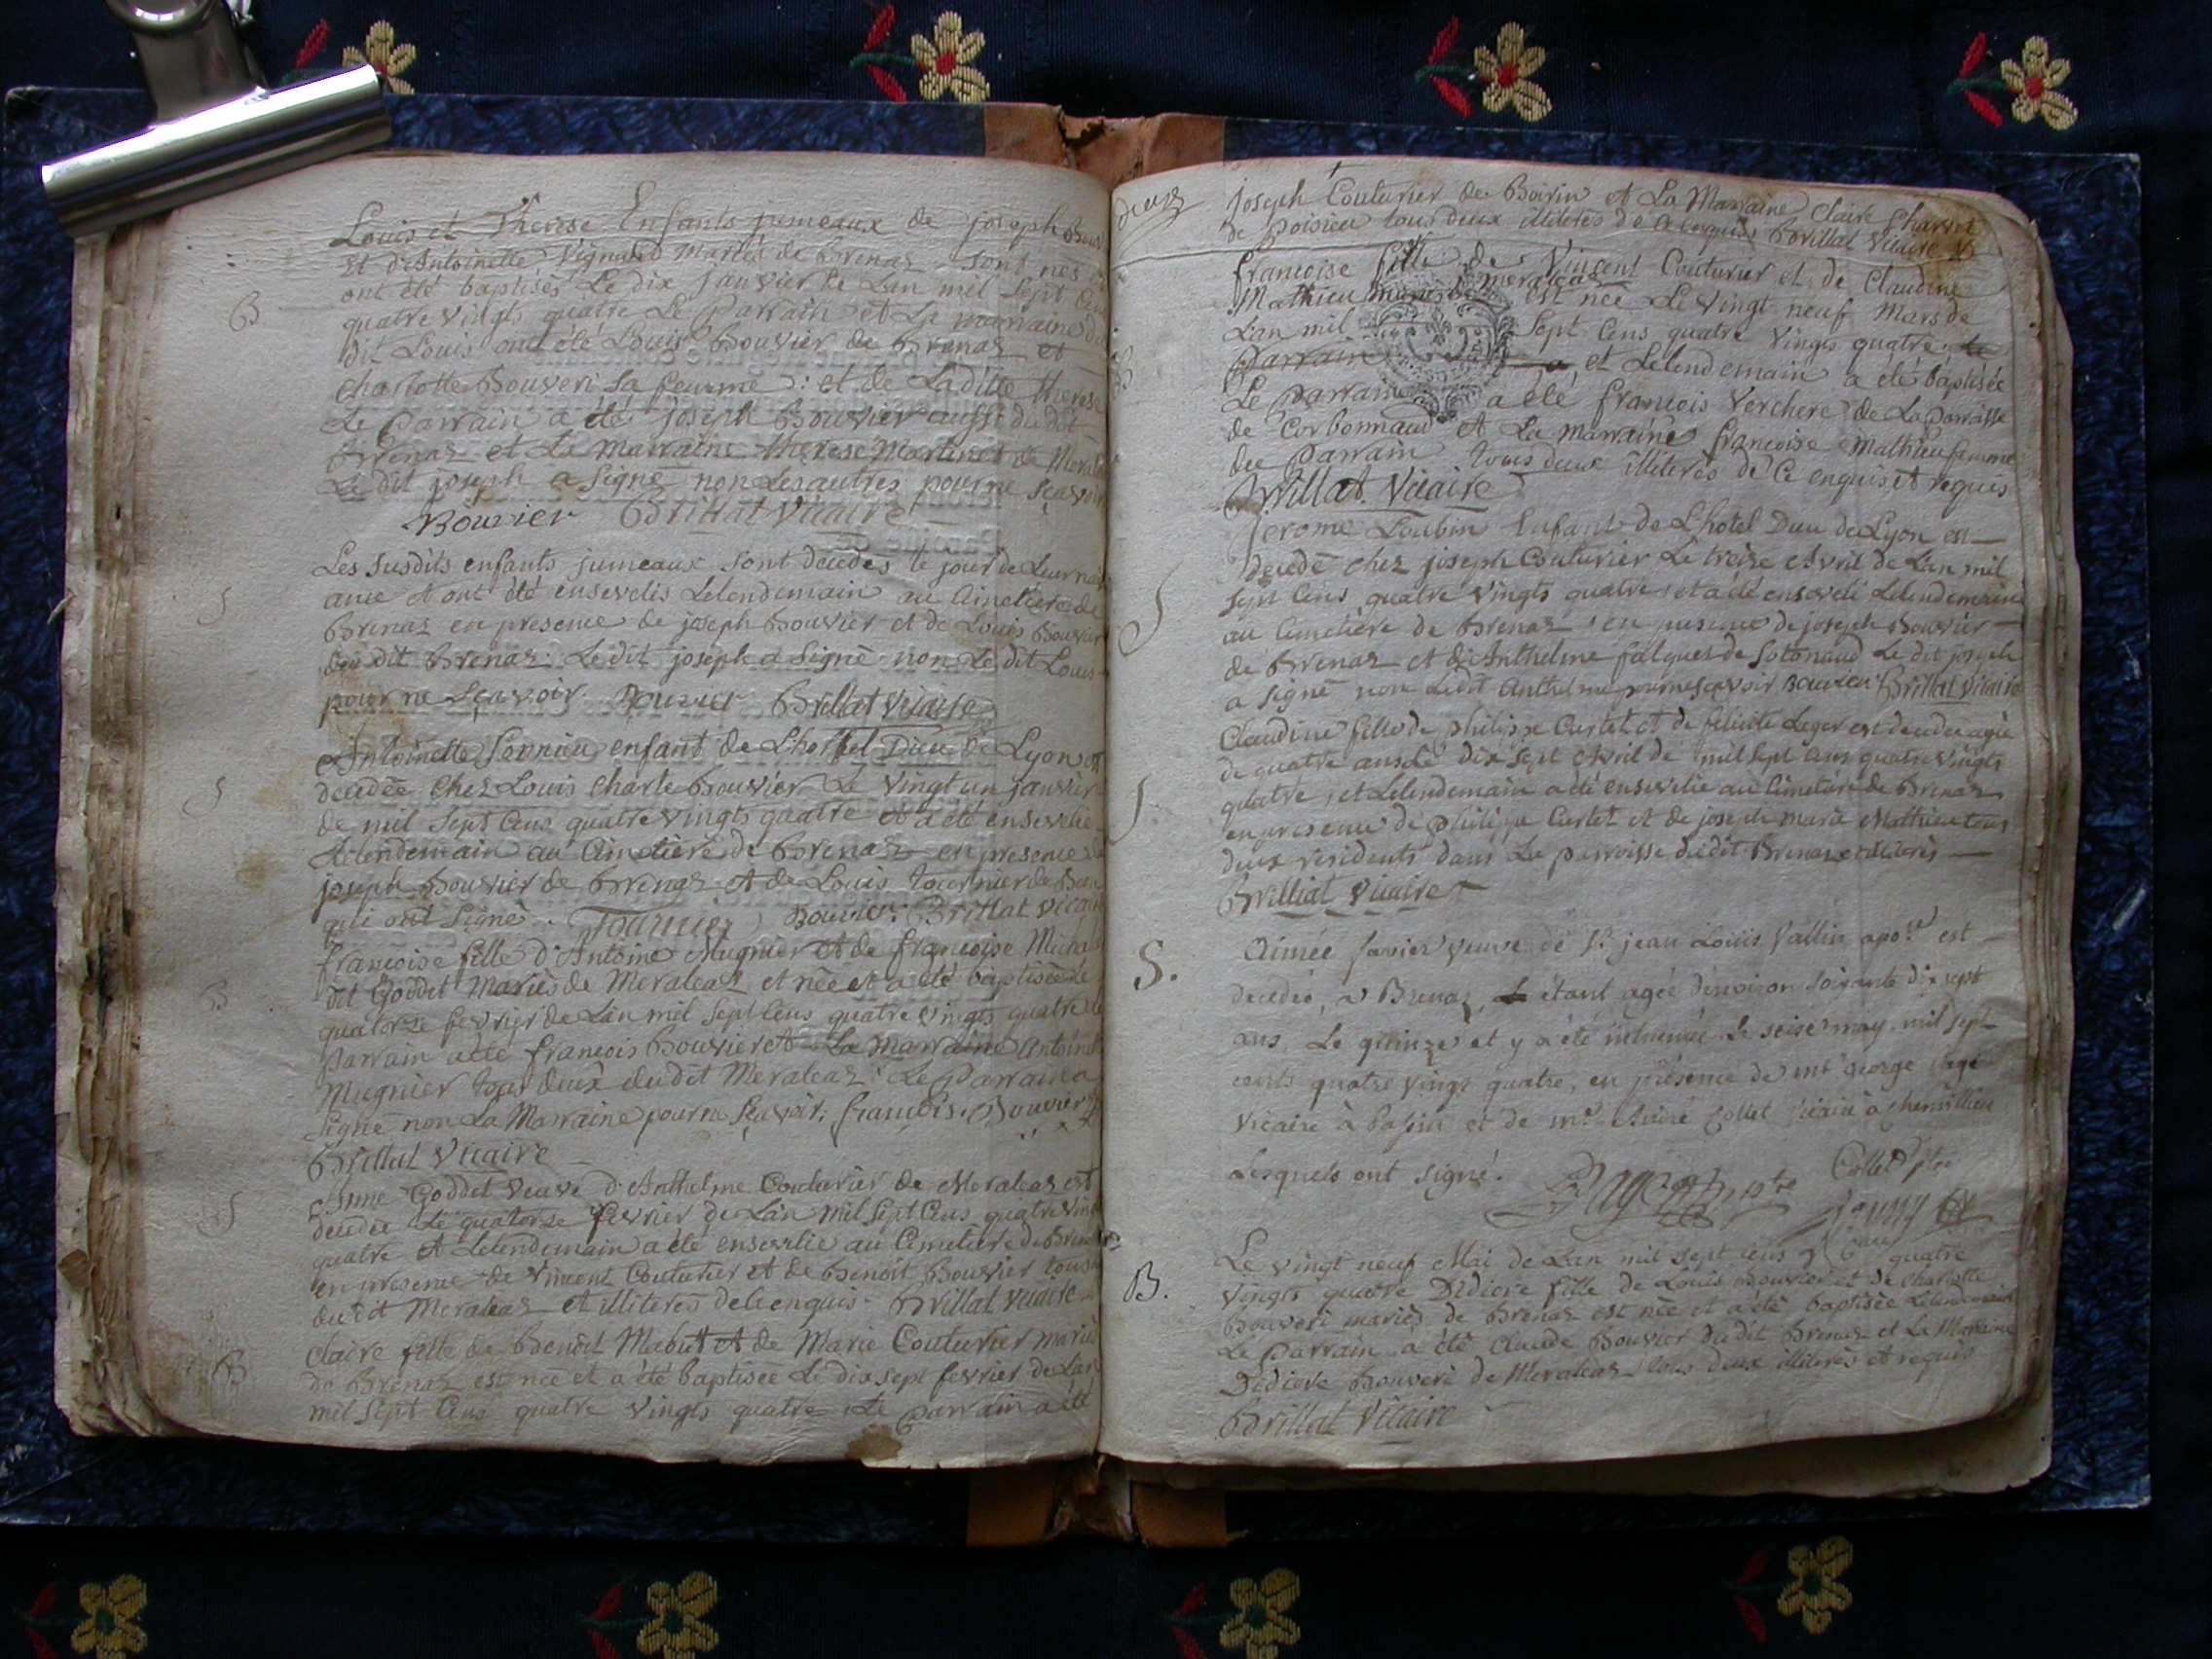 Louis et Therese Enfants jumeaux de joseph Bouv
et d'Antoinette Vignard Mariés de Brenaz sont nés
ont été baptisés Le dix janvier de Lan mil Sept Cens
B
quatre vingts quatre Le Parrain et La marraine du
dit Louis ont été Louis Bouvier de Brenaz et
charlotte Bouveri sa femme : et de La ditte therese
Le Parrain a été joseph Bouvier aussi du dit
Brenaz et La Marraine therese Martinet de Merale
Le dit joseph a signé non Les autres pour ne sçavoir
Bouvier Brillat Vicaire
Les susdits enfants jumeaux sont decedes le jour de Leur nais
S
ance et ont été ensevelis Lelendemain au Cimetiere de
Brenaz en presence de joseph Bouvier et de Louis Bouvier
du dit Brenaz Le dit joseph a Signé non Le dit Louis
pour ne Sçavoir. Bouvier Brillat Vicaire
Antoinette enfant de Lhottel Dieu de Lyon est
S
decedée Chez Louis Charle Bouvier Le Vingt un janvier
de mil Sept Cens quatre vingts quatre et a été ensevelie
Lelendemain au Cimetiere de Brenaz en presence de
joseph Bouvier de Brenaz et de Louis tournier de
qui ont Signé. Tournier Bouvier Brillat Vicaire
francoise fille d'Antoine Mugnier et de francoise Micha
B
dit Goddet Mariés de Meraleaz et née et a été baptisée le
quatorze fevrier de Lan mil Sept Cens quatre vingts quatre le
Parrain a été francois Bouvier et La Marraine Antoinette
Mugnier tous deux du dit Meraleaz : Le Parrain a
Signé non La Marraine pour ne Sçavoir; françois Bouvier
Brillat Vicaire
Anne Goddet Veuve d'Anthelme Couturier de Meraleaz est
S
decedée Le quatorze fevrier de Lan Mil Sept Cens quatre vingt
quatre et Lelendemain a été ensevelie au Cimetiere de Brenaz
en presence de Vincent Couturier et de Benoit Bouvier tous
du dit Meraleaz et illiterés de ce enquis Brillat Vicaire
Claire fille de Benoit Mabut et de Marie Couturier mariés
B
de Brenaz est née et a été baptisée Le dix sept fevrier de Lan
mil Sept Cens quatre Vingts quatre Le Parrain a été
deux
joseph Couturier de Boirin et La Marraine Claire Charvet
de Poisieu tous deux illiterés de ce enquis Brillat Vicaire
francoise fille de Vincent Couturier et de Claudine
Mathieu mariés de meraleaz est née Le vingt neuf Mars de
Lan mil Sept Cens quatre Vingts quatre le
B
Parrain a et Lelendemain a été baptisée
Le Parrain a été francois Verchere de La Parroisse
de Corbonnaud et La Marraine francoise Mathieu femme
du Parrain tous deux illiterés de Ce enquis et requis
Brillat Vicaire
jerome Loubin Enfant de Lhotel Dieu de Lyon est
S
decedé chez joseph Couturier Le treize Avril de Lan mil
Sept Cens quatre Vingts quatre et a été enseveli Lelendemain
au Cimetiere de Brenaz en presence de joseph Bouvier
de Brenaz et d'Anthelme falques de Sotonaud Le dit joseph
a signé non Ledit Anthelme pour ne sçavoir Bouvier Brillat Vicaire
Claudine fille de philippe Curtet et de felicite Leger est decedée agée
S.
de quatre ans Le dix Sept Avril de mil Sept Cens quatre Vingts
quatre, et Lelendemain a été ensevelie au Cimetiere de Brenaz
en presence de philippe Curtet et de joseph marie Mathieu tous
deux residents dans La parroisse du dit Brenaz et illiterés
Brilliat Vicaire
S.
Aimée veuve de Sr jean Louïs Vallin apore est
decedée, a Brenaz, étant agée d'environ soixante dix sept
ans, Le quinze et y a été inhumée Le seize may mil sept
cents quatre vingt quatre, en présence de mr george
Vicaire à et de mr André Collet Vicaire à chemillieu
Lesquels ont signé. Collet ptre
B.
Le vingt neuf Mai de Lan mil Sept Cens quatre
Vingts quatre Didiere fille de Louis Bouvier et de Charlotte
Bouveri mariés de Brenaz est née et a été baptisée Lelendemain
Le Parrain a été Claude Bouvier du dit Brenaz et La Marraine
Didiere Bouveri de Meraleaz tous deux illiterés et requis
Brillat Vicaire